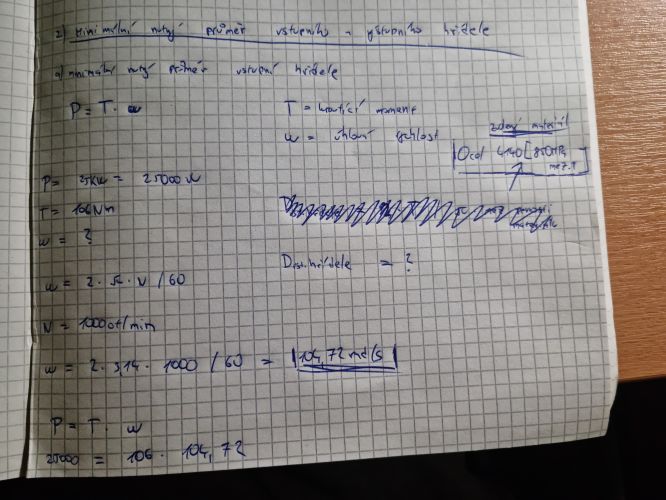 2) Minimální nutný průměr vstupního a výstupního hřídele
a) minimální nutný průměr vstupní hřídele
P = T · ω
T = kroutící moment
ω = úhlová rychlost
zvolený materiál
Ocel 4140 [850MPa
mez.
P = 25kW = 25000 W
T = 106Nm
ω = ?
Dvst.hřídele = ?
ω = 2 · π · N / 60
N = 1000 ot/min
ω = 2 · 3,14 · 1000 / 60 = 104,72 rad/s
P = T · ω
25000 = 106 · 104,72